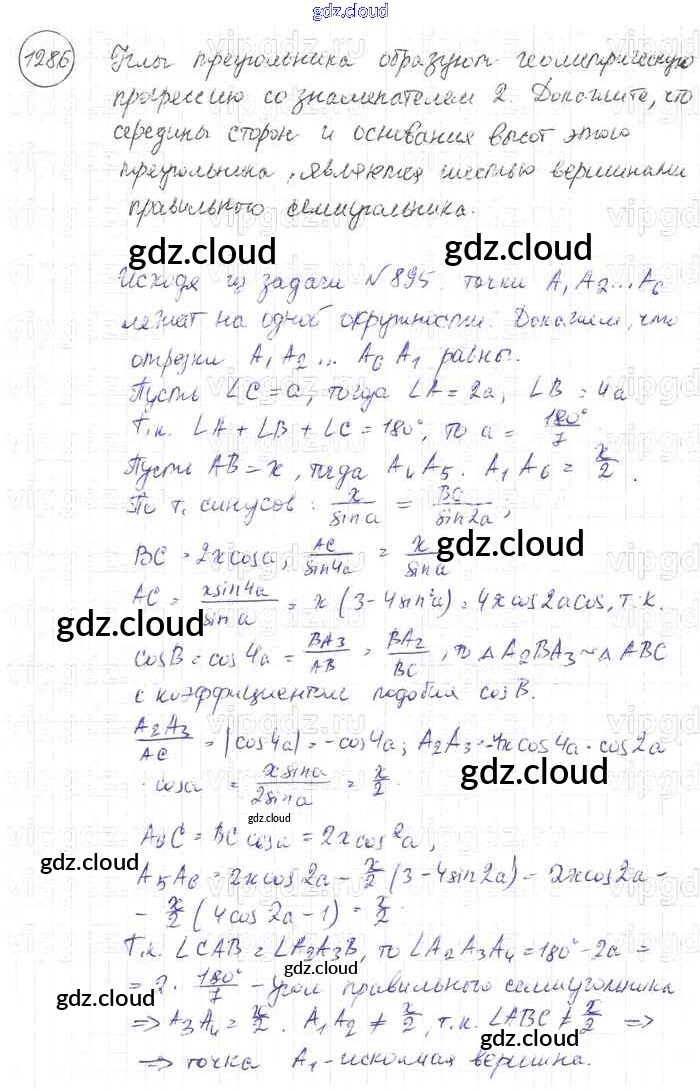 gdz.cloud
1286 Углы треугольника образуют геометрическую
прогрессию со знаменателем 2. Докажите, что
середины сторон и основания высот этого
треугольника, являются шестью вершинами
правильного семиугольника.
gdz.cloud
gdz.cloud
Исходя из задачи №895, точки A₁ A₂...A₆
лежат на одной окружности. Докажем, что
отрезки A₁A₂ ... A₆A₁ равны.
Пусть ∠C = a, тогда ∠A = 2a, ∠B = 4a
Т.к. ∠A + ∠B + ∠C = 180°, то a = 180°/7
Пусть AB = x, тогда A₄A₅. A₁A₆ = x/2.
По т. синусов: x/sin a = BC/sin 2a,
BC = 2x cos a, AC/sin 4a = x/sin a
gdz.cloud
AC = x sin 4a/sin a = x (3 - 4 sin² a) = 4x cos 2a cos, т.к.
gdz.cloud
cos B = cos 4a = BA₃/AB = BA₂/BC, то △A₂BA₃ ~ △ABC
с коэффициентом подобия cos B.
A₂A₃/AC = |cos 4a| = -cos 4a; A₂A₃ = -4x cos 4a · cos 2a
gdz.cloud
· cos a = x sin a/2 sin a = x/2.
A₆C = BC cos a = 2x cos² a,
gdz.cloud
A₅A₆ = 2x cos 2a - x/2 (3 - 4 sin 2a) - 2x cos 2a -
- x/2 (4 cos 2a - 1) = x/2.
gdz.cloud
Т.к. ∠CAB = ∠A₂A₃B, то ∠A₂A₃A₄ = 180° - 2a =
gdz.cloud
= 2 · 180°/7 - угол правильного семиугольника
gdz.cloud
⇒ A₃A₄ = x/2. A₁A₂ ≠ x/2, т.к. ∠ABC ≠ x/2 ⇒
gdz.cloud
⇒ точка A₁ - искомая вершина.